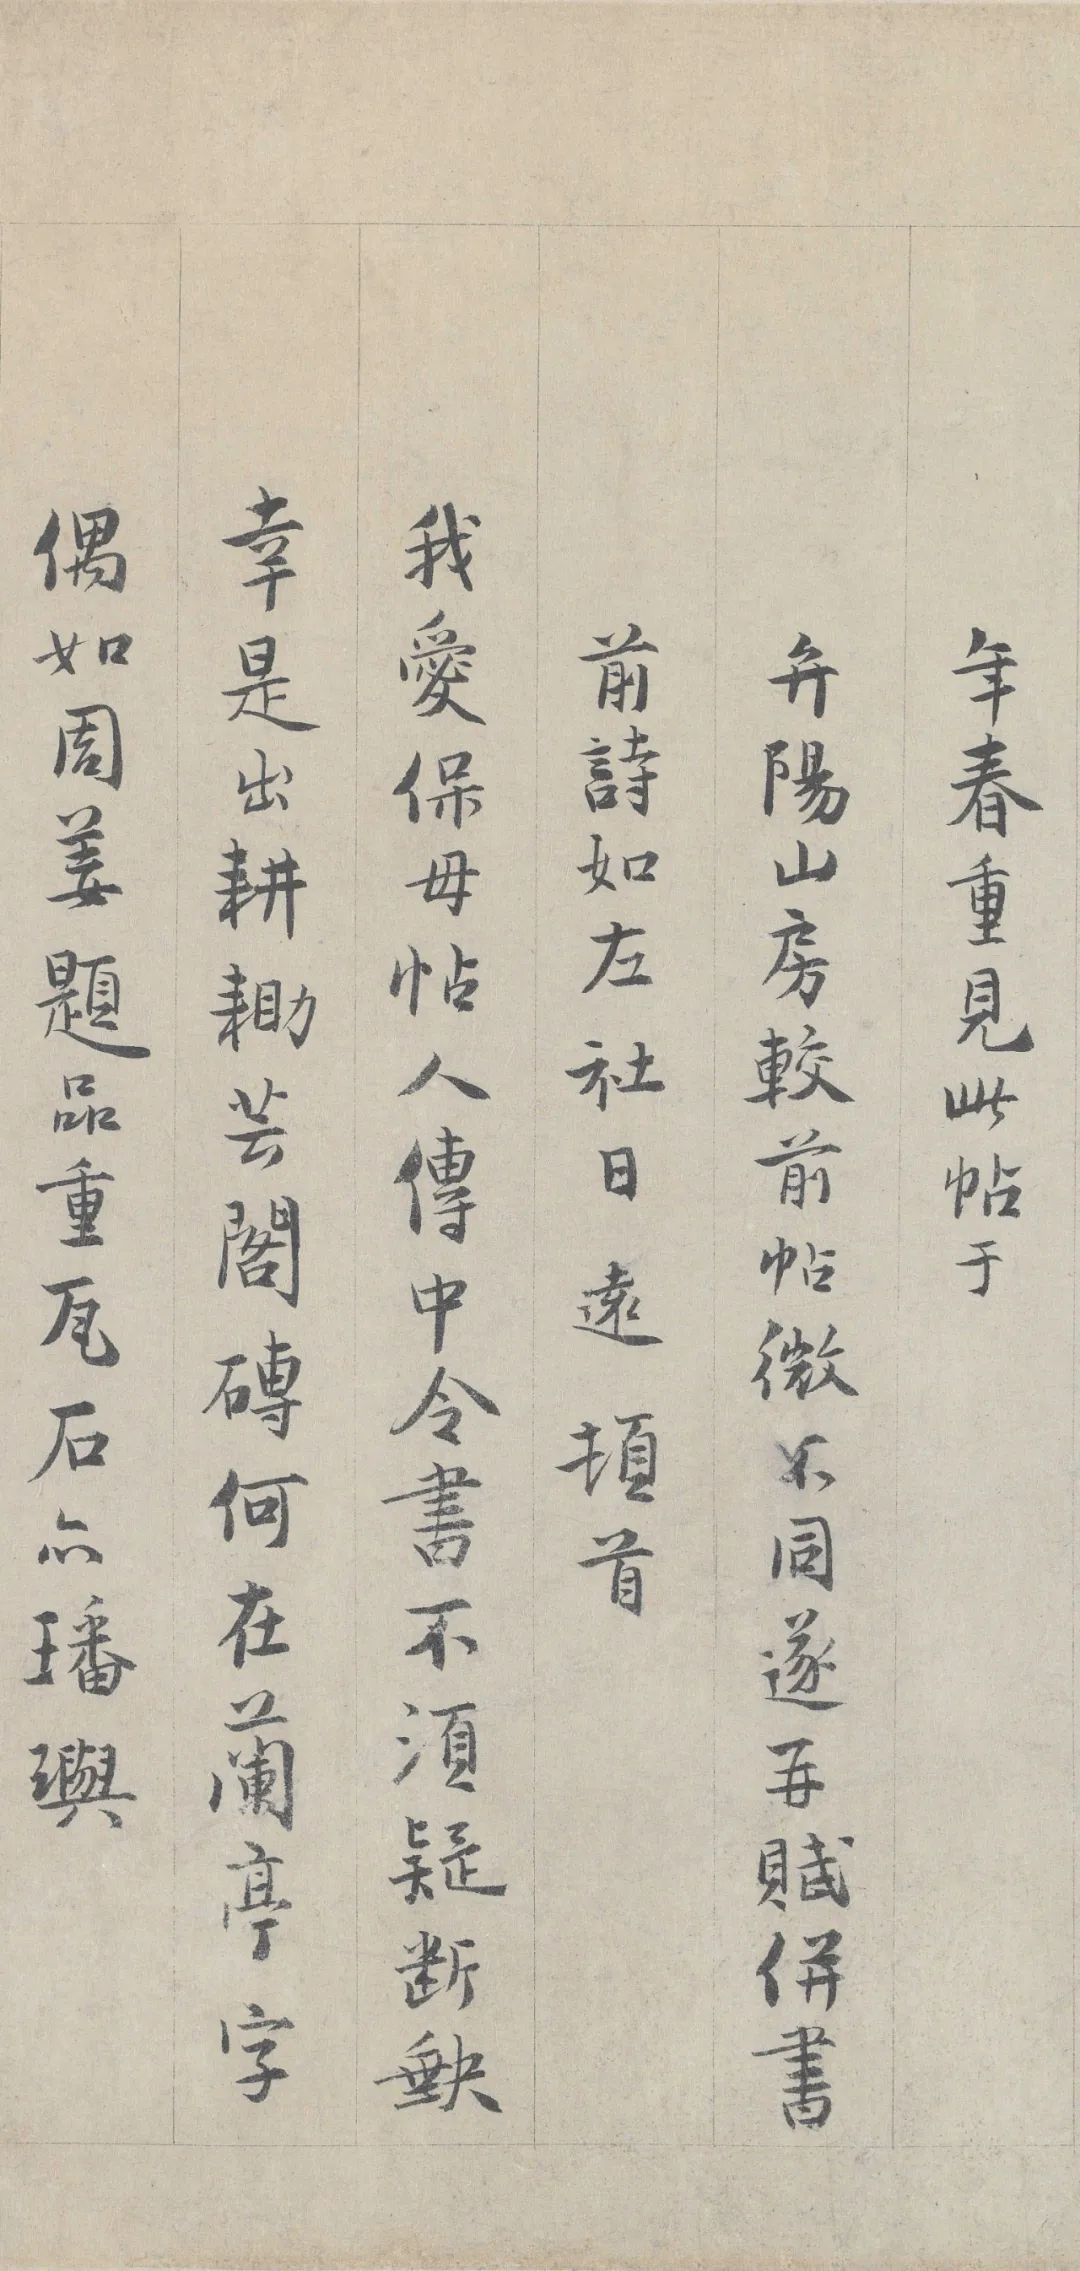 年春重見此帖于
弁陽山房較前帖微不同遂再賦併書
前詩如左社日遠頓首
我愛保母帖人傳中令書不須疑斷缺
幸是出耕耡芸閣磚何在蘭亭字
偶如周姜題品重瓦石亦璠璵